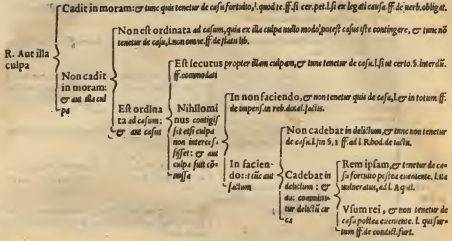 Cadit in moram: & tunc quis tenetur de casu fortuito, l. quod te. ff. si cer. pet. l. si ex legati causa. ff. de verb. obligat.
R. Aut illa
culpa
Non cadit
in moram:
& aut illa cul
pa
Non est ordinata ad casum, quia ex illa culpa nullo modo potest casus iste contingere, & tunc nō
tenetur de casu, l. non omne. ff.
Est ordina
ta ad casum:
& aut casus
Est secutus propter illam culpam, & tunc tenetur de casu. l. si ut certo. §. interdū.
ff. commodati
Nihilomi
nus contigis
set etsi culpa
non interces-
sisset: & aut
culpa fuit cō-
missa
In non faciendo, & non tenetur quis de casu, l. & in totum ff.
de impensan reb. dotal. factis.
In facien-
do: & tūc aut
factum
Non cadebat in delictum, & tunc non tenetur
de casu. l. in §. 2 ff. ad l. Rhod. de iactu.
Cadebat in
delictum: &
tur delictū cir
ca
Rem ipsam, & tenetur de ca-
su fortuito postea eveniente. l. ita
vulneratus, ad l. Aquil.
Usum rei, & non tenetur de
casu postea eveniente. l. qui fur-
tum ff. de condict. furt.